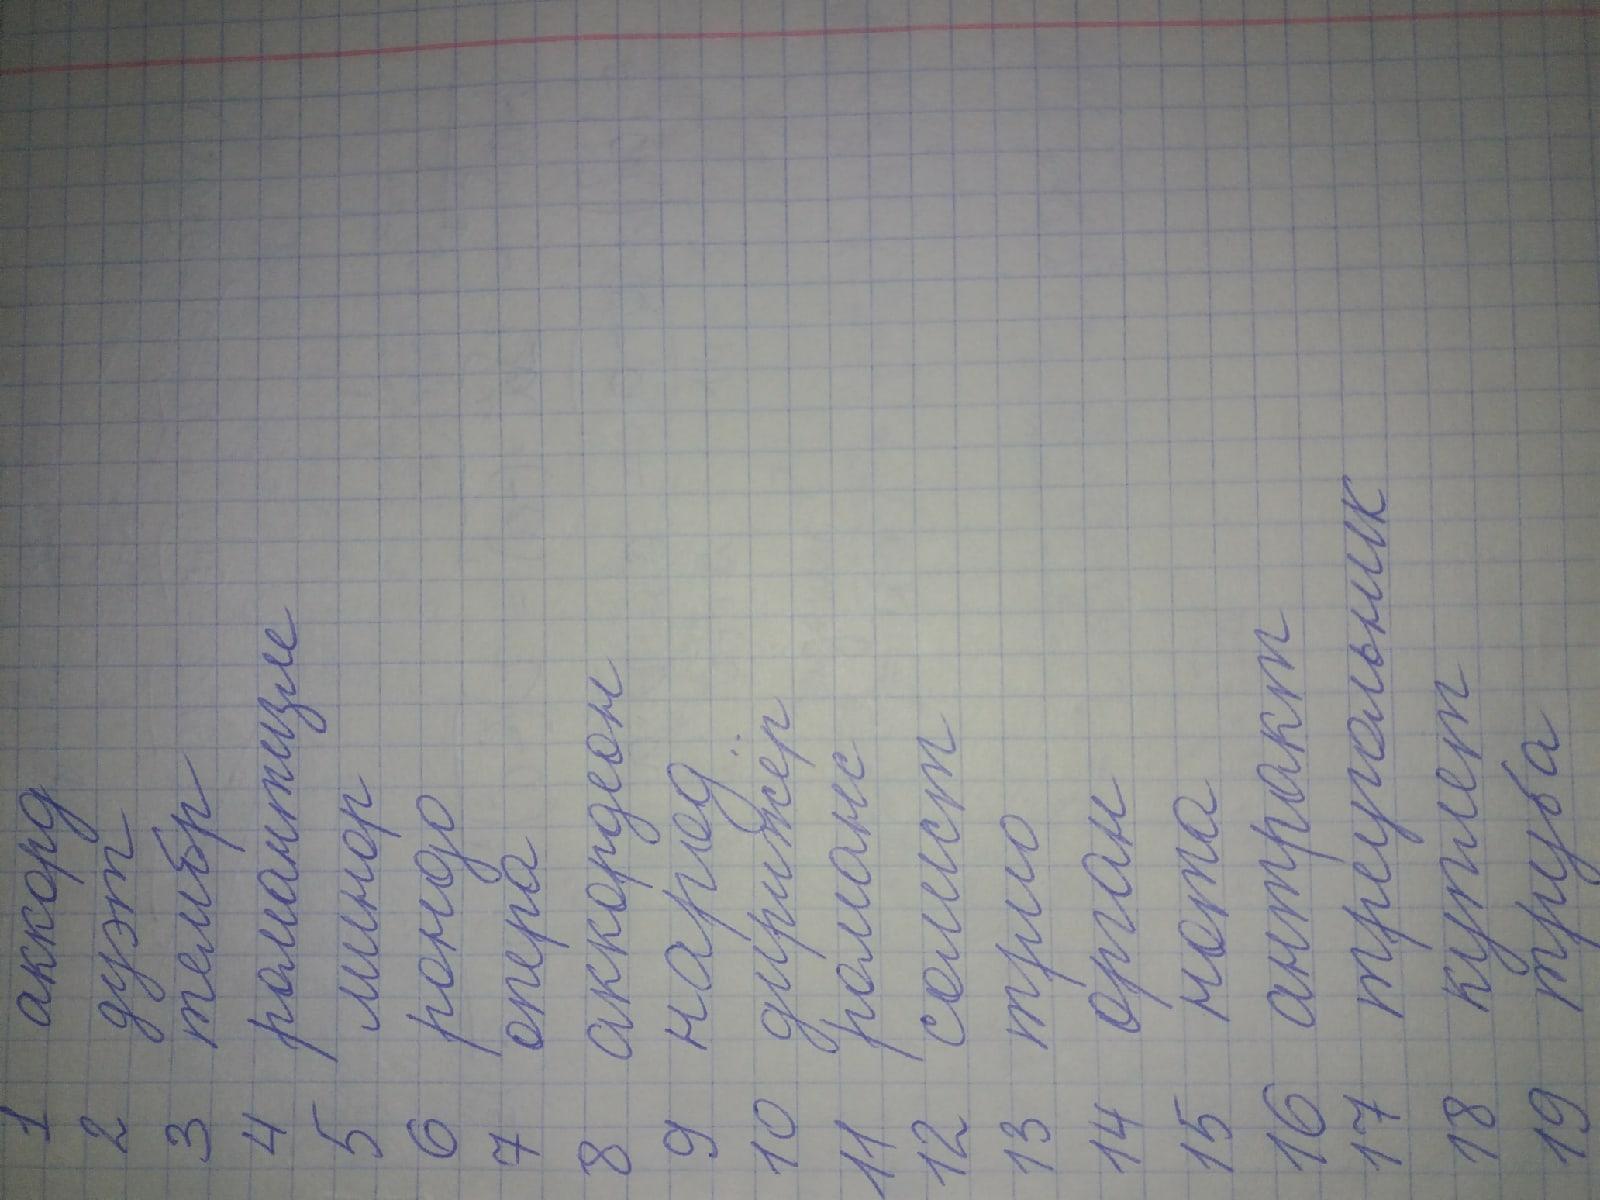 1 аккорд
2 дуэт
3 тембр
4 романтизм
5 минор
6 рондо
7 опера
8 аккордеон
9 народ
10 дирижёр
11 романс
12 солист
13 трио
14 орган
15 нота
16 антракт
17 треугольник
18 куплет
19 труба